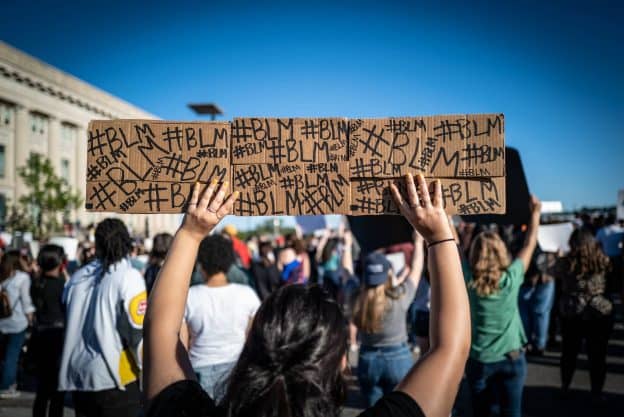 #BLM #BLM #BLM #BLM #BLM #BLM
#BLM #BLM #BLM #BLM #BLM #BLM
#BLM #BLM #BLM #BLM #BLM #BLM
#BLM #BLM #BLM #BLM #BLM #BLM